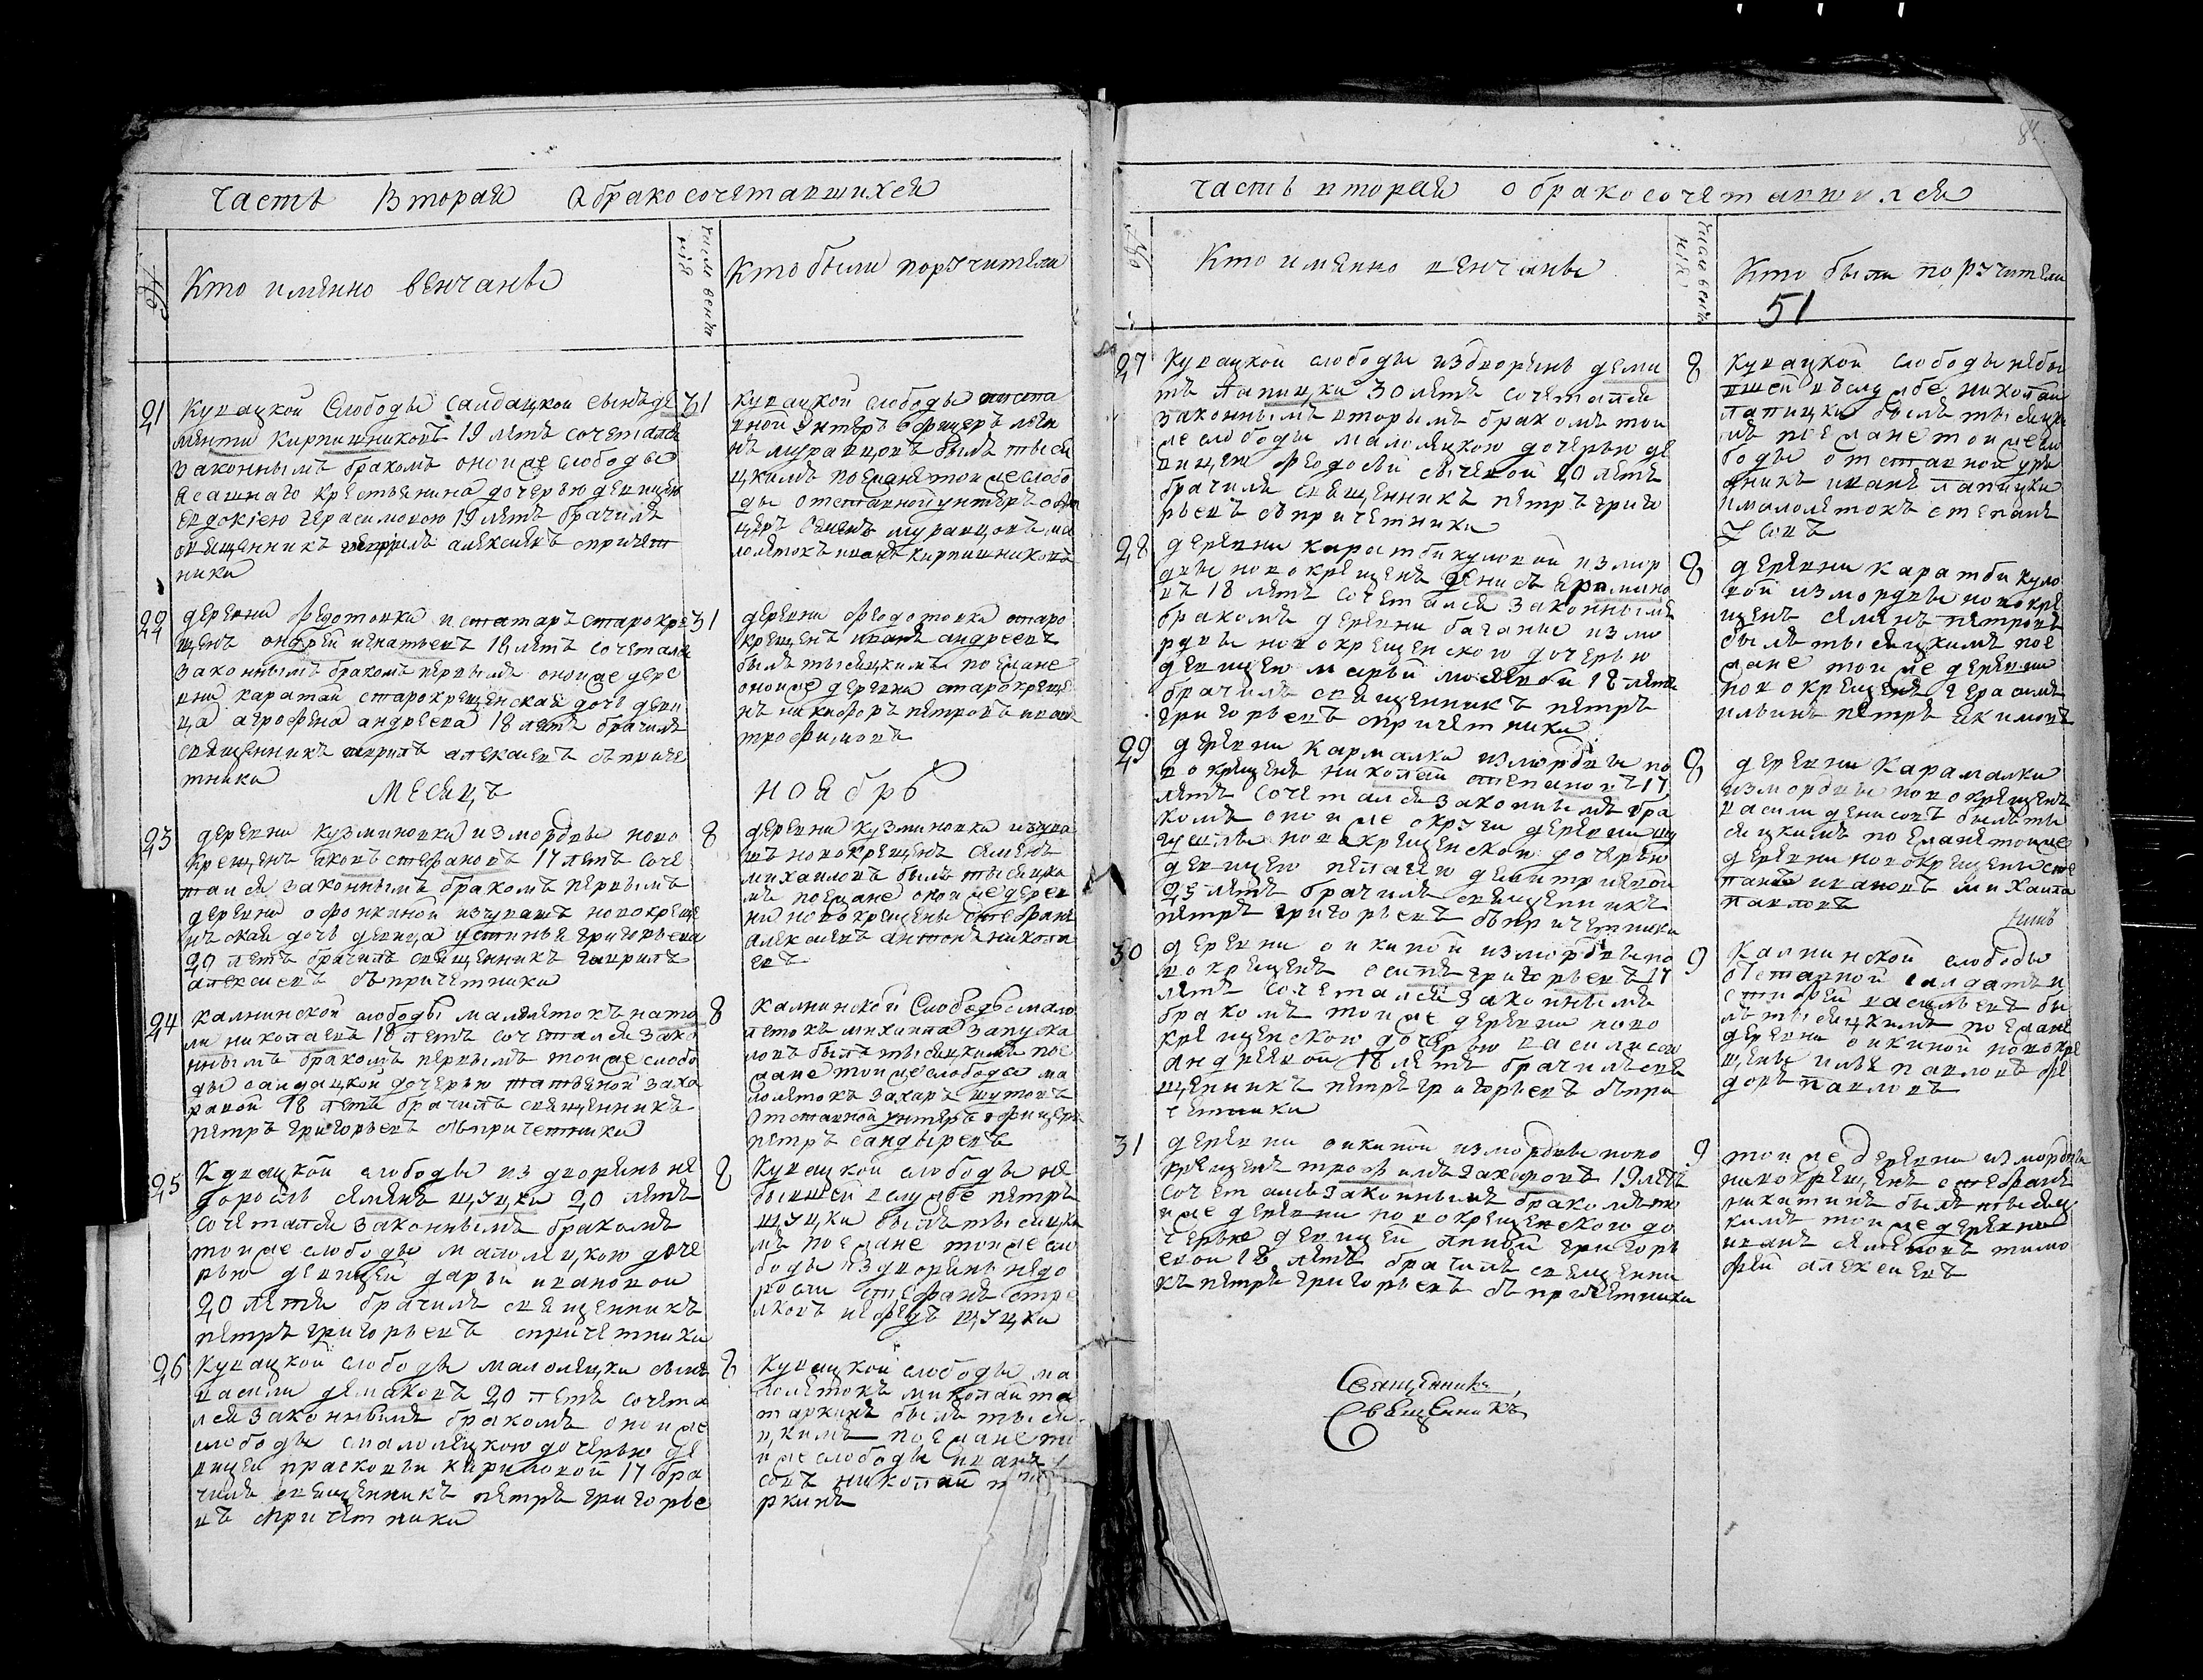 часть Вторая о бракосочетавшихся
№
Кто имянно венчаны
число венчания
Кто были поручители
21
Кувацкой Слободы салдацкой сынъ де
ментий Кирпишниковъ 19 летъ сочетался
законнымъ бракомъ оной же слободы
ясашнаго крестьянина дочерью девицею
евдокiею герасимовою 19 летъ брачилъ
священникъ гаврилъ алексеевъ с причет
ники
31
Кувацкой слободы отста
вной унтеръ офицеръ
муравцовъ былъ тыся
цкимъ поежане той же слобо
ды отставной унтеръ офи
церъ семенъ муравцовъ ма
лолетокъ иванъ кирпишниковъ
22
деревни федотовки ис татаръ старокре
щенъ онdрей игнатьевъ 18 летъ сочетался
законнымъ бракомъ первымъ оной же дере
вни каратай старокрещенская дочь деви
ца агрофена андреева 18 летъ брачилъ
священникъ гаврилъ алексеевъ съ приче
тники
31
деревни федотовки старо
крещенъ иванъ андреевъ
былъ тысяцкимъ поежане
оной же деревни старокреще
нъ никифоръ петровъ иванъ
трофимовъ
месяцъ ноябрь
23
деревни кузминовки из мордвы ново
крещенъ яковъ стефановъ 17 летъ соче
тался законнымъ бракомъ первымъ
деревни офонкиной из чувашъ новокреще
нская дочь девица устинья григорьева
20 летъ брачилъ священникъ гаврилъ
алексеевъ съ причетники
8
деревни кузминовки из чува
шъ новокрещенъ семенъ
михаиловъ былъ тысяцки
мъ поежане оной же дерев
ни новокрещены стефанъ
алексеевъ антонъ никола
евъ
24
калнинской слободы малолетокъ ната
ли николаевъ 18 летъ сочетался зако
ннымъ бракомъ первымъ той же слобо
ды салдацкой дочерью татьяной заха
ровой 18 летъ брачилъ священникъ
петръ григорьевъ съ причетники
8
калнинской Слободы мало
летокъ михаила запуска
ловъ былъ тысяцкимъ пое
жане той же слободы ма
лолетокъ захаръ шутовъ
отставной унтеръ офицеръ
петръ сандыревъ
25
Кувацкой слободы из дворянъ не
доросль семенъ щуцки 20 летъ
сочетался законнымъ бракомъ
той же слободы малолецкою доче
рью девицей дарьи ивановой
20 летъ брачилъ священникъ
петръ григорьевъ с причетники
8
Кувацкой слободы не
бывшей в службе петръ
щуцки былъ тысяцки
мъ поежане той же сло
боды из дворянъ недо
росли стефанъ стре
лковъ нефедъ щуцки
26
Кувацкой слободы малолецки сынъ
васили демаковъ 20 летъ сочета
лся законнымъ бракомъ оной же
слободы с малолецкою дочерью де
вицей прасковьи кириловой 17 бра
чилъ священникъ петръ григорье
въ с причетники
8
Кувацкой слободы ма
лолетокъ миколай та
таркинъ былъ тыся
цкимъ поежане то
й же слободы иванъ
совъ николай
ркинъ
часть вторая о бракосочетавшихся
№
Кто имянно венчаны
число венчания
Кто были поручители
51
27
Кувацкой слободы из дворянъ деми
тъ лапицки 30 летъ сочетался
законнымъ вторымъ бракомъ той
же слободы малолецкою дочерью де
вицею феодосьи сычевой 20 летъ
брачилъ священникъ петръ григо
рьевъ съ причетники
8
Кувацкой слободы небы
вшей въ службе николай
лапицки былъ тысяцки
мъ поежане той же сло
боды отставной уря
дникъ иванъ лапицки
и малолетокъ степанъ
28
деревни каратбикуловой из мор
двы новокрещенъ денисъ еримино
въ 18 летъ сочетался законнымъ
бракомъ деревни баганы из мо
рдвы новокрещенскою дочерью
девицею марьи моsеевой 18 летъ
брачилъ священникъ петръ
григорьевъ с причетники
8
деревни каратбикуло
вой из мордвы новокре
щенъ семенъ петровъ
былъ тысяцкимъ пое
жане той же деревни
новокрещенъ герасимъ
ильинъ петръ екимовъ
29
деревни кармалки из мордвы но
вокрещенъ николай степановъ 17
летъ сочетался законнымъ бра
комъ оной же округи деревни
новокрещенскою дочерью
девицею пелагею демитриевой
23 летъ брачилъ священникъ
петръ григорьевъ съ причетники
8
деревни карамалки
из мордвы новокрещенъ
васили денисовъ былъ ты
сяцкимъ поежане той же
деревни новокрещены сте
панъ ивановъ михаила
павловъ
30
деревни оикиной из мордвы но
вокрещенъ осипъ григорьевъ 17
летъ сочетался законнымъ
бракомъ той же деревни ново
крещенскою дочерью василисою
андреевой 18 летъ брачилъ свя
щенникъ петръ григорьевъ съ при
четники
9
Калнинской слободы
отставной салдатъ
василевъ бы
лъ тысяцкимъ поежане
деревни оикиной новокре
щены илья павловъ фе
доръ павловъ
31
деревни оикиной из мордвы ново
крещенъ трофимъ захаровъ 19 летъ
сочетался законнымъ бракомъ то
й же деревни новокрещенскою до
черью девицей анной григорь
евой 18 летъ брачилъ священни
къ петръ григорьевъ съ причетники
9
той же деревни из мордвы
новокрещенъ стефанъ
никитинъ былъ тысяц
кимъ той же деревни
иванъ семеновъ тимо
фей алексеевъ
Священникъ
Священникъ